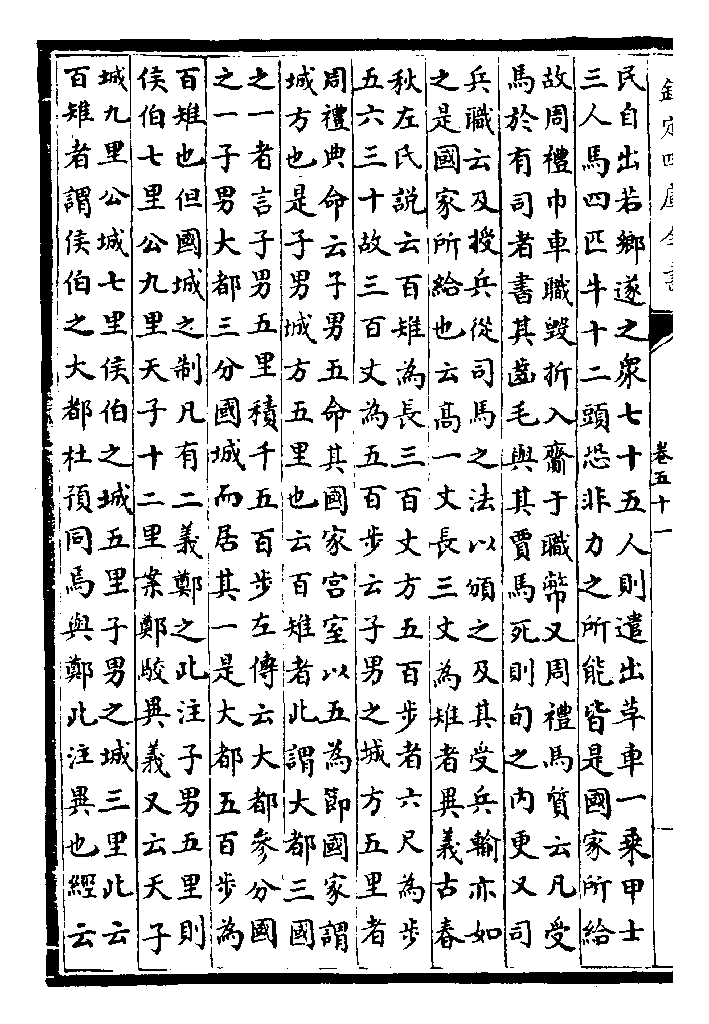 欽定四庫全書
卷五十一
民自出若鄉遂之衆七十五人則遣出草車一乘甲士
三人馬四匹牛十二頭恐非力之所能皆是國家所給
故周禮巾車職毀折入齎于職幣又周禮馬質云凡受
馬於有司者書其齒毛與其賈馬死則旬之内更又司
兵職云及授兵從司馬之法以頒之及其受兵輸亦如
之是國家所給也云高一丈長三丈為雉者異義古春
秋左氏說云百雉為長三百丈方五百步者六尺為步
五六三十故三百丈為五百步云子男之城方五里者
周禮典命云子男五命其國家宮室以五為節國家謂
城方也是子男城方五里也云百雉者此謂大都三國
之一者言子男五里積千五百步左傳云大都參分國
之一子男大都三分國城而居其一是大都五百步為
百雉也但國城之制凡有二義鄭之此注子男五里則
侯伯七里公九里天子十二里案鄭駮異義又云天子
城九里公城七里侯伯之城五里子男之城三里此云
百雉者謂侯伯之大都杜預同焉與鄭此注異也經云